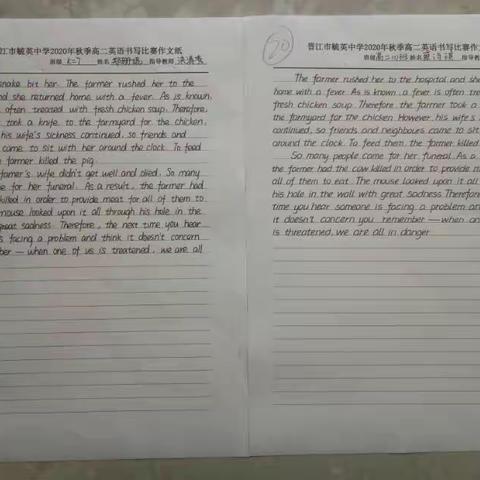 江市毓英中学2020年秋季高二英语书写比赛作文纸
班级 姓名 指导教师
snake bit her. The farmer rushed her to the
nd she returned home with a fever. As is known,
often treated with fresh chicken soup. Therefore,
took a knife to the farmyard for the chicken.
his wife's sickness continued, so friends and
came to sit with her around the clock. To feed
farmer killed the pig.
farmer's wife didn't get well and died. So many
e for her funeral. As a result, the farmer had
killed in order to provide meat for all of them to
mouse looked upon it all through his hole in the
great sadness. Therefore, the next time you hear
is facing a problem and think it doesn't concern
ber — when one of us is treatened, we are all
20
晋江市毓英中学2020年秋季高二英语书写比赛作文纸
班级 姓名 指导教
The farmer rushed her to the hospital and she
home with a fever. As is known, a fever is often trea
fresh chicken soup. Therefore, the farmer took a
the farmyard for the chicken. However, his wife's
continued, so friends and neighbours came to sit
around the clock. To feed them, the farmer killed
So many people came for her funeral. As a
the farmer had the cow killed in order to provide m
all of them to eat. The mouse looked upon it all
his hole in the wall with great sadness. Therefore
time you hear someone is facing a problem and
it doesn't concern you, remember — when on
is threatened, we are all in danger.